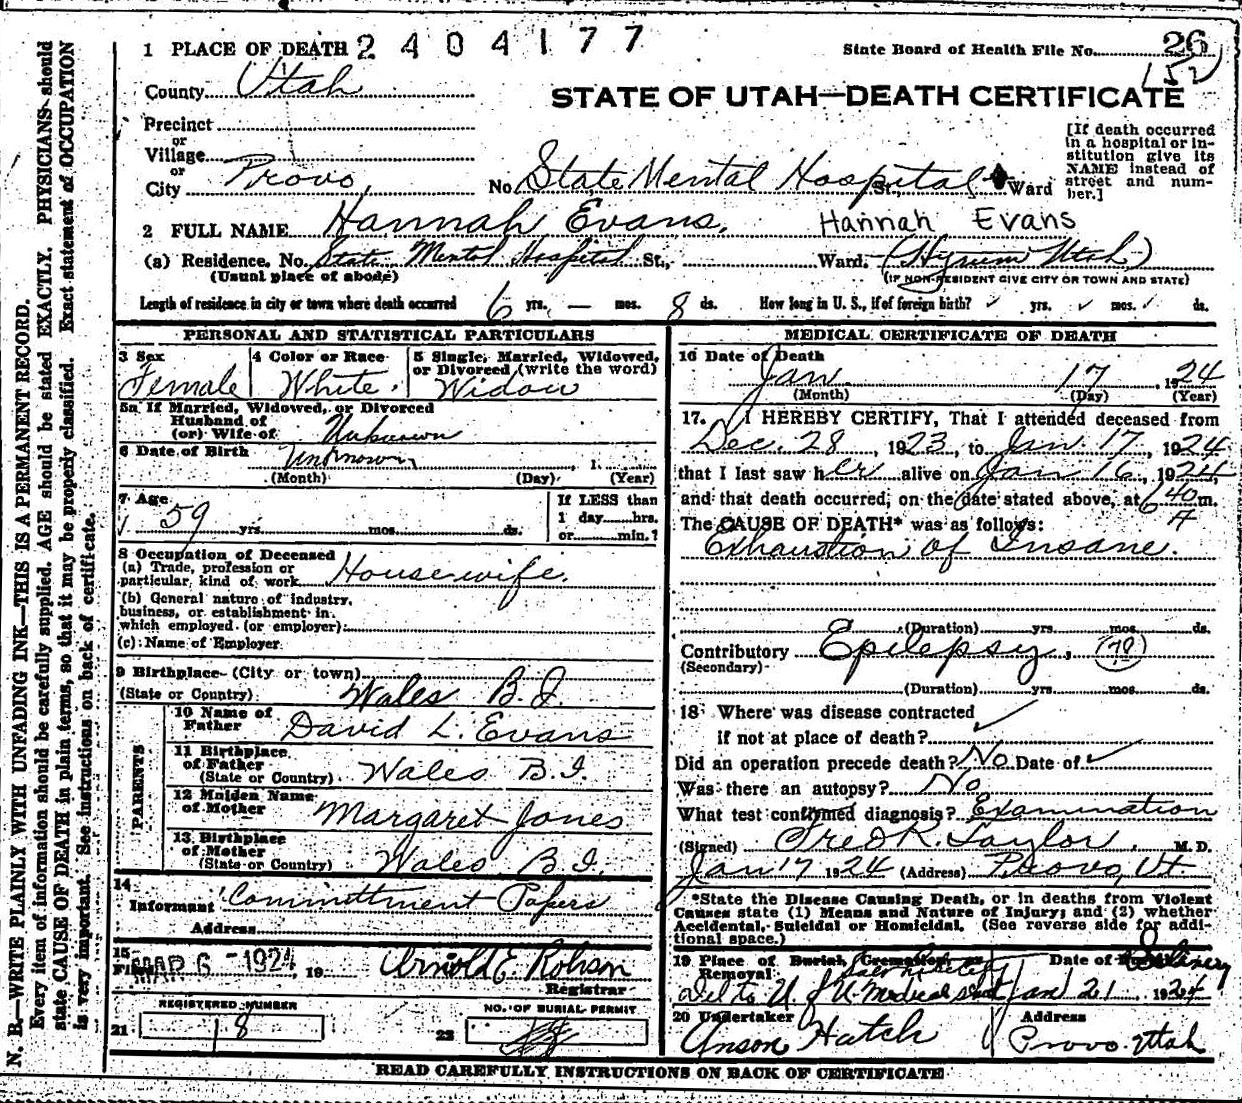 1 PLACE OF DEATH 2404177
State Board of Health File No. 26
152
County Utah
STATE OF UTAH—DEATH CERTIFICATE
Precinct
or
Village
or
City Provo,
No. State Mental Hospital St., Ward
[If death occurred
in a hospital or in-
stitution give its
NAME instead of
street and num-
ber.]
2 FULL NAME Hannah Evans, Hannah Evans
(a) Residence. No. State Mental Hospital St., Ward. (Hyrum Utah)
(Usual place of abode) (IF NON-RESIDENT GIVE CITY OR TOWN AND STATE)
Length of residence in city or town where death occurred 6 yrs. — mos. 8 ds. How long in U. S., if of foreign birth? ✓ yrs. ✓ mos. ✓ ds.
PERSONAL AND STATISTICAL PARTICULARS
3 Sex
Female
4 Color or Race
White.
5 Single, Married, Widowed,
or Divorced (write the word)
Widow
5a If Married, Widowed, or Divorced
Husband of
(or) Wife of Unknown
6 Date of Birth Unknown, 1
(Month) (Day) (Year)
7 Age
59 yrs. mos. ds.
If LESS than
1 day hrs.
or min.?
8 Occupation of Deceased
(a) Trade, profession or
particular, kind of work Housewife.
(b) General nature of industry,
business, or establishment in
which employed (or employer)
(c) Name of Employer
9 Birthplace (City or town)
(State or Country) Wales B.I.
PARENTS
10 Name of
Father David L. Evans
11 Birthplace
of Father
(State or Country) Wales B.I.
12 Maiden Name
of Mother Margaret Jones
13 Birthplace
of Mother
(State or Country) Wales B.I.
14
Informant Committment Papers
Address
15
Filed MAR 6 - 1924 19 Arnold E. Robson
Registrar
REGISTERED NUMBER
21 18
NO. OF BURIAL PERMIT
22
MEDICAL CERTIFICATE OF DEATH
16 Date of Death
Jan. 17, 1924
(Month) (Day) (Year)
17. I HEREBY CERTIFY, That I attended deceased from
Dec. 28, 1923, to Jan. 17, 1924,
that I last saw her alive on Jan 16, 1924,
and that death occurred, on the date stated above, at 6 40 m.
A
The CAUSE OF DEATH* was as follows:
Exhaustion of Insane.
(Duration) yrs. mos. ds.
Contributory Epilepsy, (78)
(Secondary)
(Duration) yrs. mos. ds.
18 Where was disease contracted
if not at place of death? ✓
Did an operation precede death? No Date of ✓
Was there an autopsy? No
What test confirmed diagnosis? Examination
(Signed) Fred R. Taylor, M. D.
Jan 17 1924 (Address) Provo, Ut.
*State the Disease Causing Death, or in deaths from Violent
Causes state (1) Means and Nature of Injury; and (2) whether
Accidental, Suicidal or Homicidal. (See reverse side for addi-
tional space.)
19 Place of Burial, Cremation or
Removal Salt Lake City
Date of Delivery
Del to U of U Medical Jan 21, 1924
20 Undertaker
Anson Hatch
Address
Provo Utah
READ CAREFULLY INSTRUCTIONS ON BACK OF CERTIFICATE
N. B.—WRITE PLAINLY WITH UNFADING INK—THIS IS A PERMANENT RECORD.
Every item of information should be carefully supplied. AGE should be stated EXACTLY. PHYSICIANS should
state CAUSE OF DEATH in plain terms, so that it may be properly classified. Exact statement of OCCUPATION
is very important. See instructions on back of certificate.